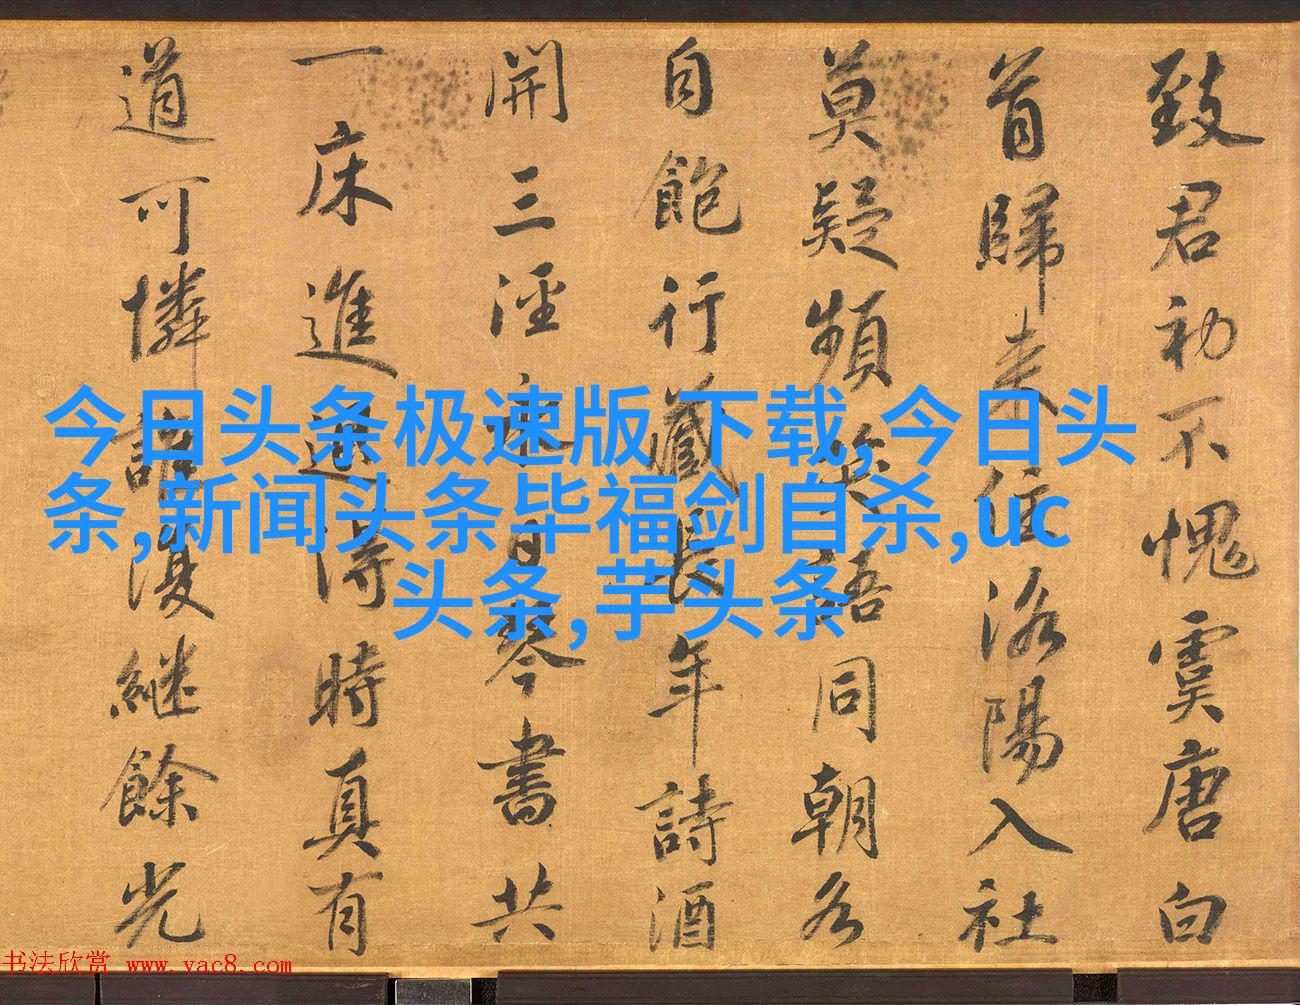 致君初不愧虞唐白
首歸来住洛陽入社
莫疑頻笑語同朝各
自飽行藏長年詩酒
開三涇永日琴書共
一床進退得時真有
道可憐誰復継餘光
今日头条极速版 下载,今日头
条,新闻头条毕福剑自杀,uc
头条,芋头条
书法欣赏 www.yac8.com